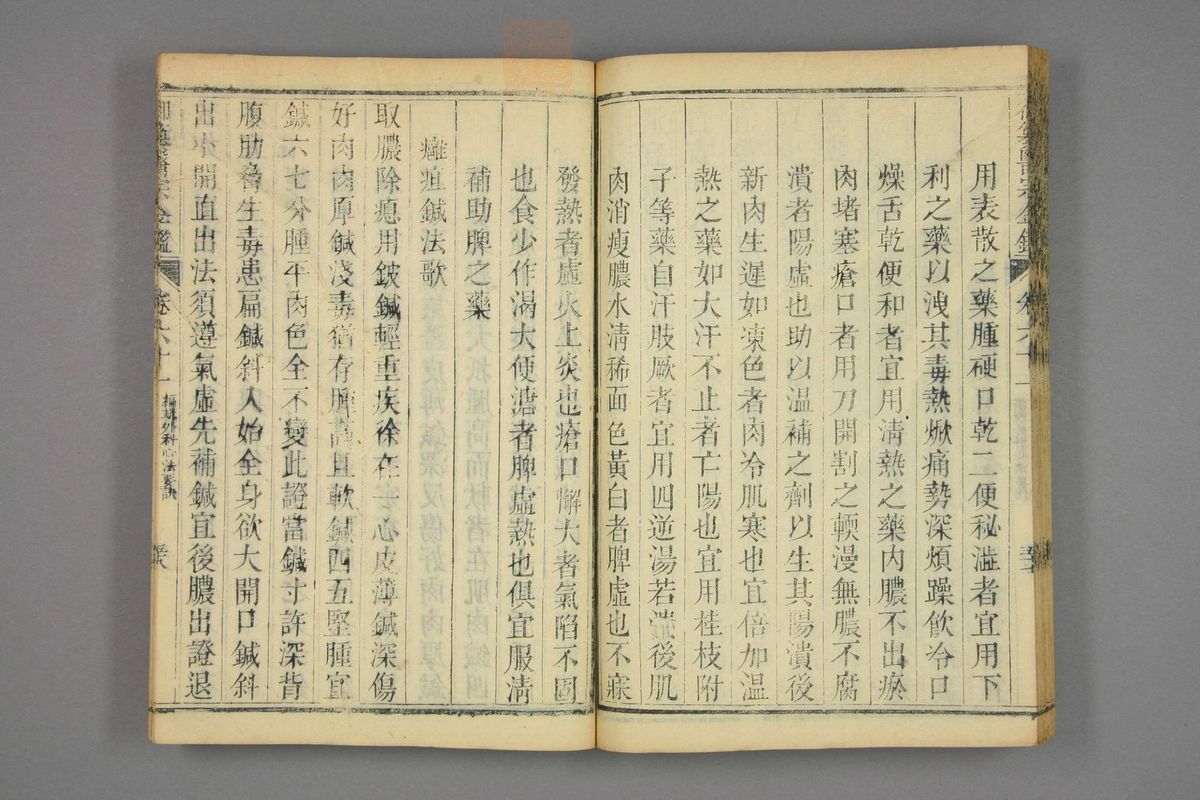 用表散之藥腫硬口乾二便秘澁者宜用下
利之藥以洩其毒熱焮痛勢深煩躁飲冷口
燥舌乾便和者宜用淸熱之藥內膿不出瘀
肉堵塞瘡口者用刀開割之輭漫無膿不腐
潰者陽虛也助以溫補之劑以生其陽潰後
新肉生遲如凍色者肉冷肌寒也宜倍加溫
熱之藥如大汗不止者亡陽也宜用桂枝附
子等藥自汗肢厥者宜用四逆湯若潰後肌
肉消瘦膿水淸稀面色黃白者脾虛也不寐
發熱者虛火上炎也瘡口懈大者氣陷不固
也食少作渴大便溏者脾虛熱也俱宜服淸
補助脾之藥
癰疽鍼法歌
取膿除瘜用鈹鍼輕重疾徐在一心皮薄鍼深傷
好肉肉厚鍼淺毒猶存腫高且軟鍼四五堅腫宜
鍼六七分腫平肉色全不變此證當鍼寸許深背
腹肋脅生毒患扁鍼斜入始全身欲大開口鍼斜
出小開直出法須遵氣虛先補鍼宜後膿出證退
御纂醫宗金鑑
卷六十一
編輯外科心法要訣